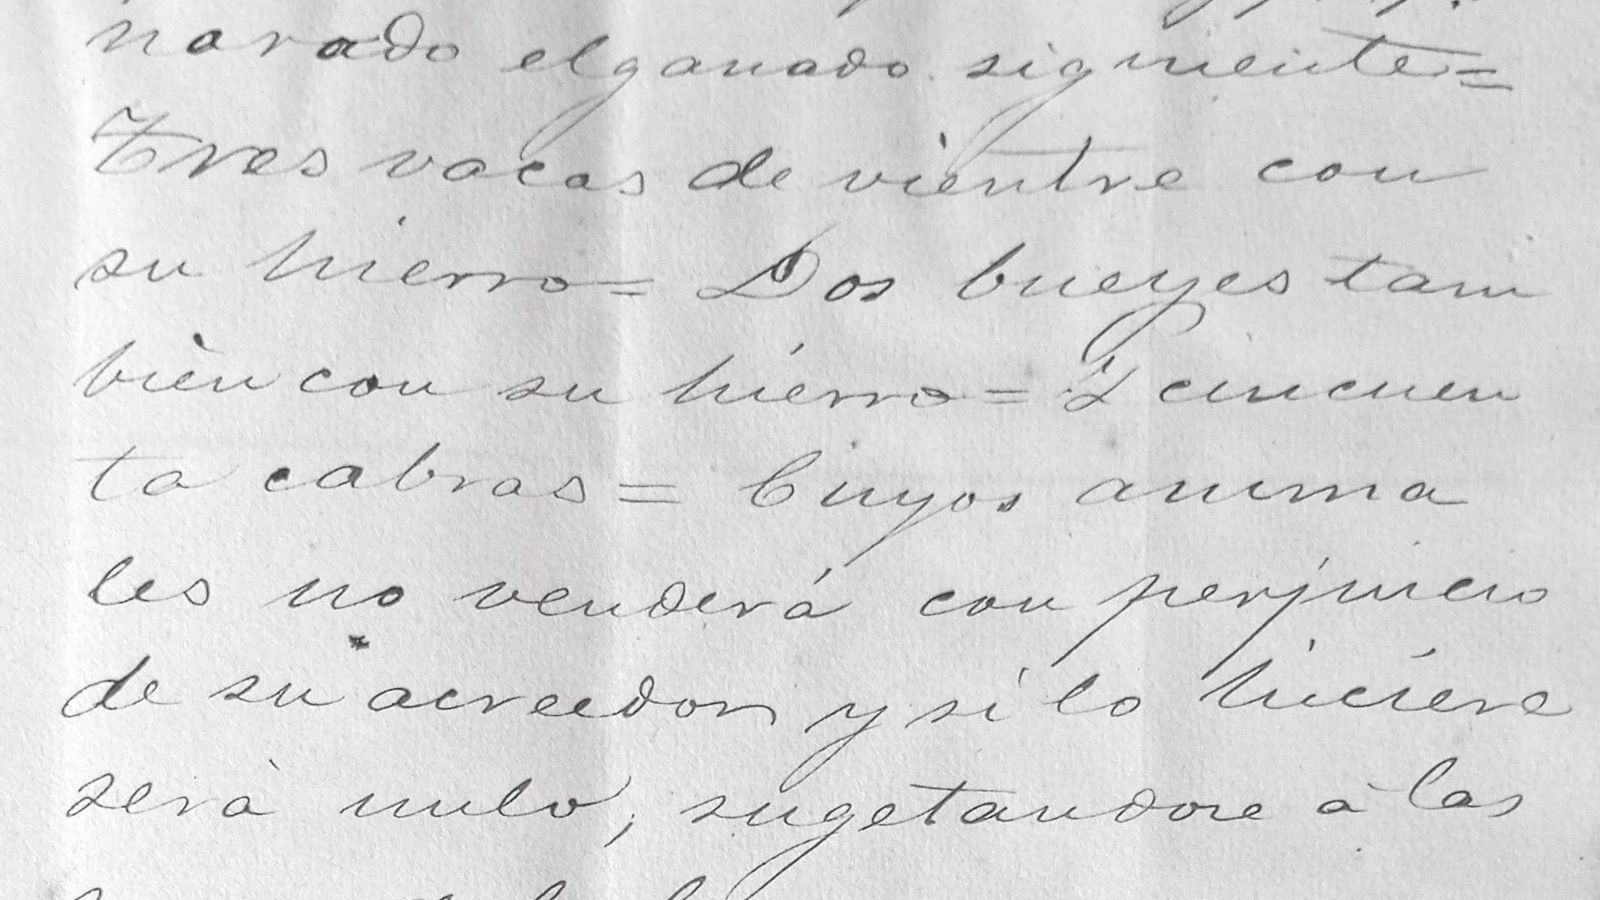 norado el ganado siguiente=
Tres vacas de vientre con
su hierro= Dos bueyes tam
bièn con su hierro= Y cincuen
ta cabras= Cuyos anima
les no venderá con perjuicio
de su acreedor y si lo hiciere
serà nulo, sugetandose à las